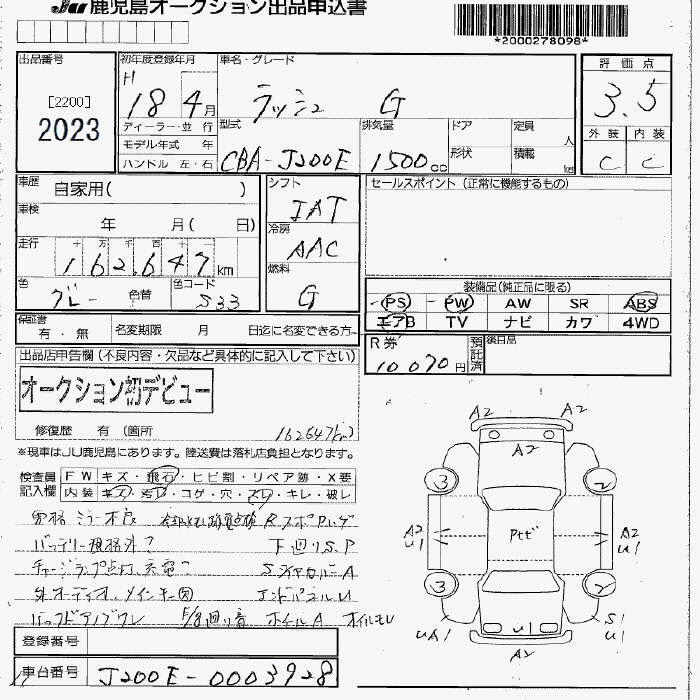 JU 鹿児島オークション出品申込書
*2000278098*
出品番号
[2200]
2023
初年度登録年月
H
18 4月
ディーラー・並 行
モデル年式 年
ハンドル 左・右
車名・グレード
ラッシュ G
型式
CBA-J200E
排気量
1500cc
ドア
形状
定員
人
積載
kg
評 価 点
3.5
外 装
内 装
C
C
車歴
自家用( )
車検
年 月( 日)
走行
十 万 千 百 十 一
162,647km
色
グレー
色替
色コード
S33
シフト
IAT
冷房
AAC
燃料
G
セールスポイント (正常に機能するもの)
装備品(純正品に限る)
PS PW AW SR ABS
エアB TV ナビ カワ 4WD
保証書
有・無
名変期限 月 日迄に名変できる方
R券
10070円
預託済
後日品
出品店申告欄(不良内容・欠品など具体的に記入して下さい)
オークション初デビュー
修復歴 有(箇所
162647km)
※現車はJU鹿児島にあります。陸送費は落札店負担となります。
検査員
記入欄
FW キズ・飛石・ヒビ割・リペア跡・X要
内装 キズ・汚レ・コゲ・穴・スレ・キレ・破レ
ミラー不良
バッテリー規格外?
下廻りS.P
チャージランプ点灯、充電?
外オーディオ、メインキー
エンドパネルU
登録番号
車台番号
J200E-0003928
A2
A2
A2
3
2
A2
U1
Ptガ
A2
U1
3
2
UA1
U1
S1
U1
A2